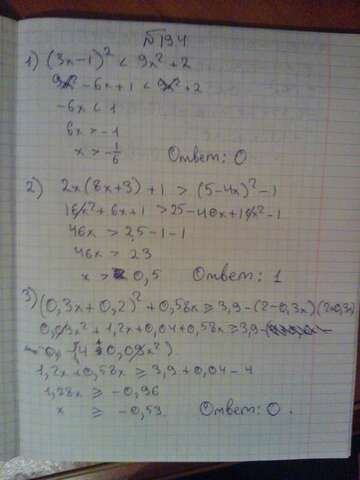 №194
1) (3x-1)² < 9x²+2
9x²-6x+1 < 9x²+2
-6x < 1
6x > -1
x > -1/6 Ответ: 0
2) 2x(8x+3)+1 > (5-4x)²-1
16x²+6x+1 > 25-40x+16x²-1
46x > 25-1-1
46x > 23
x > 0,5 Ответ: 1
3) (0,3x+0,2)²+0,58x ≥ 3,9-(2-0,3x)(2+0,3x)
0,09x²+1,2x+0,04+0,58x ≥ 3,9-
(4+0,09x²)
1,2x+0,58x ≥ 3,9+0,04-4
1,78x ≥ -0,96
x ≥ -0,53 Ответ: 0.